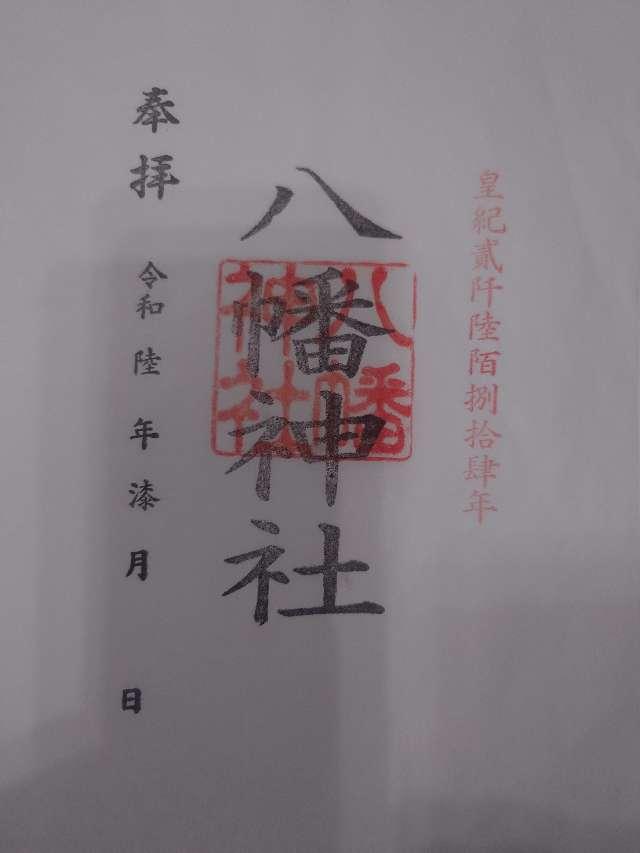 皇紀貳阡陸陌捌拾肆年
八幡神社
八幡
神社
奉拝
令和陸年漆月 日